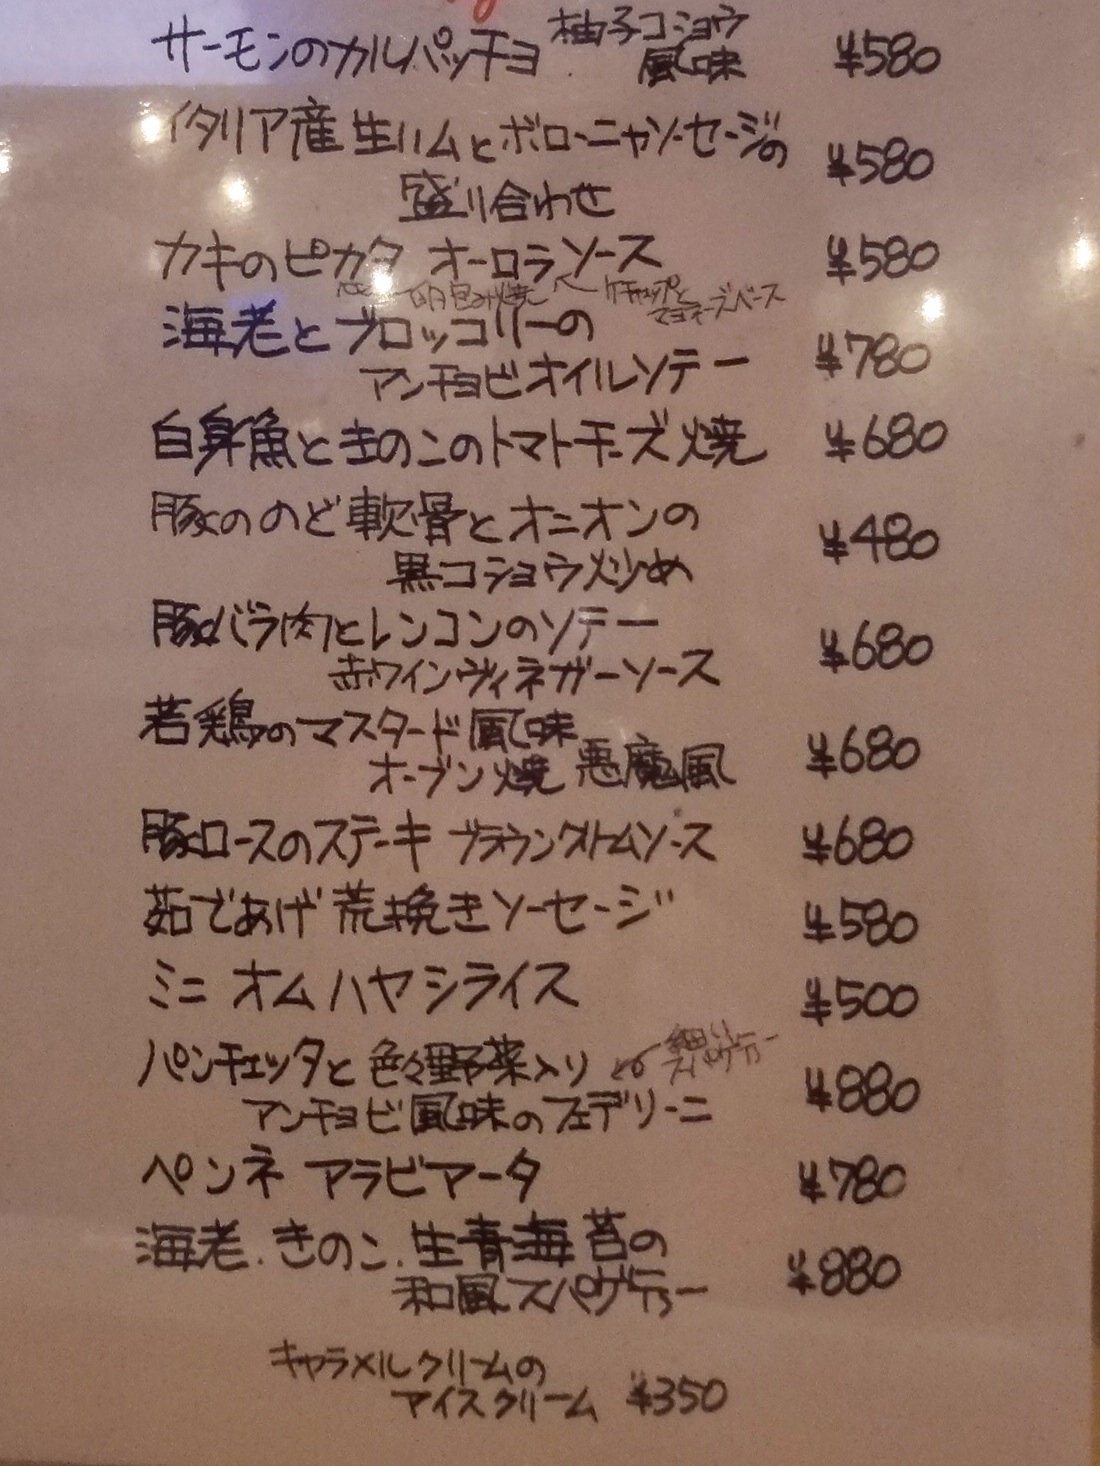 サーモンのカルパッチョ 柚子コショウ風味 ¥580
イタリア産生ハムとボローニャソーセージの ¥580
盛り合わせ
カキのピカタ オーロラソース ¥580
卵包み焼 ケチャップとマヨネーズベース
海老とブロッコリーの
アンチョビオイルソテー ¥780
白身魚ときのこのトマトチーズ焼 ¥680
豚ののど軟骨とオニオンの ¥480
黒コショウ炒め
豚バラ肉とレンコンのソテー ¥680
赤ワインヴィネガーソース
若鶏のマスタード風味
オーブン焼 悪魔風 ¥680
豚ロースのステーキ ブラウンクリームソース ¥680
茹であげ荒挽きソーセージ ¥580
ミニ オムハヤシライス ¥500
パンチェッタと色々野菜入り 細いスパゲティー
アンチョビ風味のフェデリーニ ¥880
ペンネ アラビアータ ¥780
海老.きのこ.生青海苔の ¥880
和風スパゲティー
キャラメルクリームの
アイスクリーム ¥350